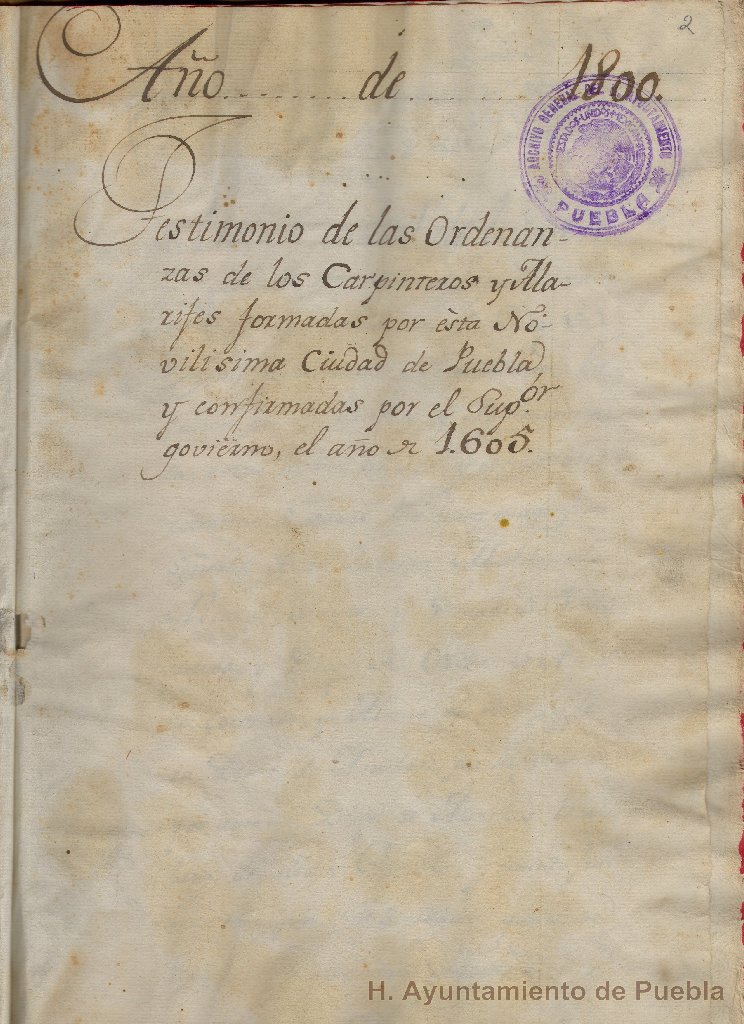 2
Año........de..........1800.
ARCHIVO GENERAL DEL AYUNTAMIENTO
ESTADOS UNIDOS MEXICANOS
PUEBLA
Testimonio de las Ordenan-
zas de los Carpinteros y Ala-
rifes formadas por èsta No-
vilisima Ciudad de Puebla,
y confirmadas por el Sup.or
govierno, el año de 1.605.
H. Ayuntamiento de Puebla